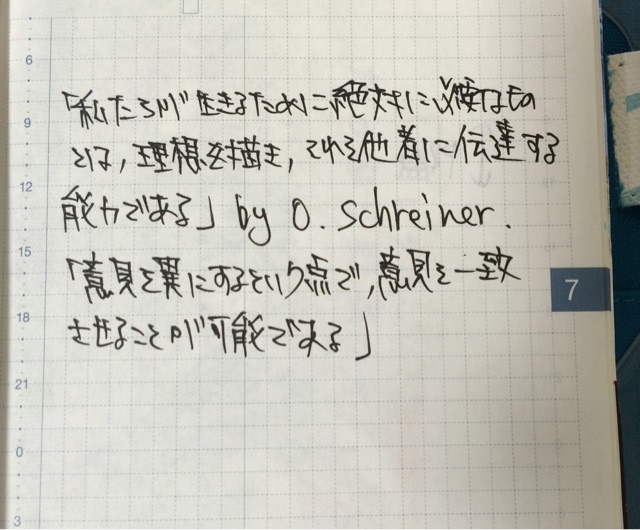 6
9
12
15
18
21
0
3
7
「私たちが生きるために絶対に必要なもの
とは,理想を描き,それを他者に伝達する
能力である」by O. Schreiner.
「意見を異にするという点で,意見を一致
させることが可能である」